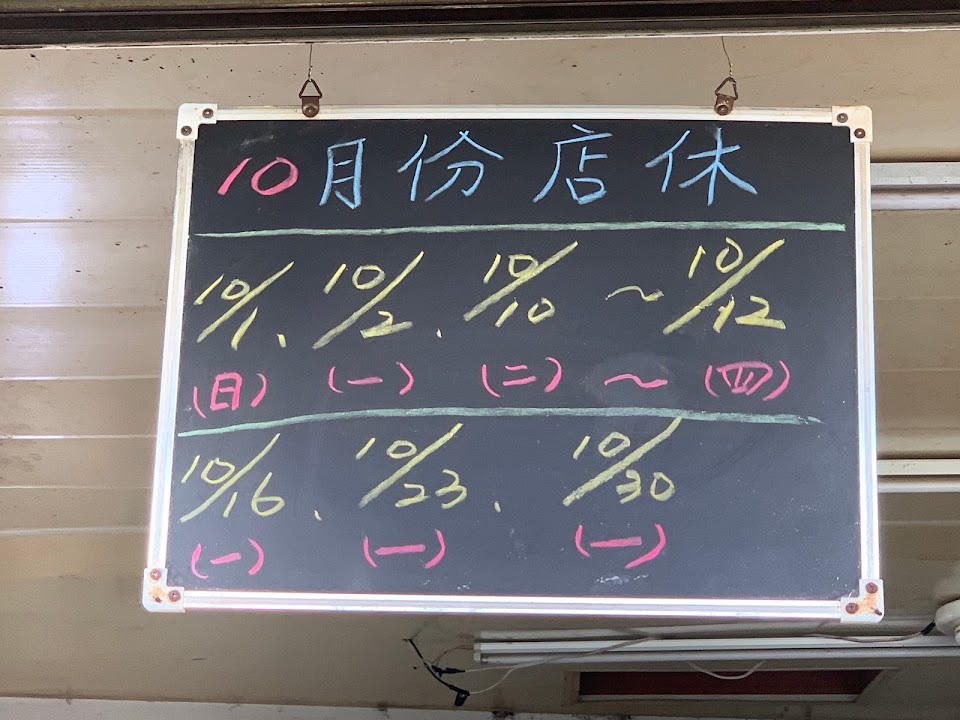 10月份店休
10/1、10/2、10/10～10/12
(日) (一) (二)～(四)
10/16、10/23、10/30
(一) (一) (一)